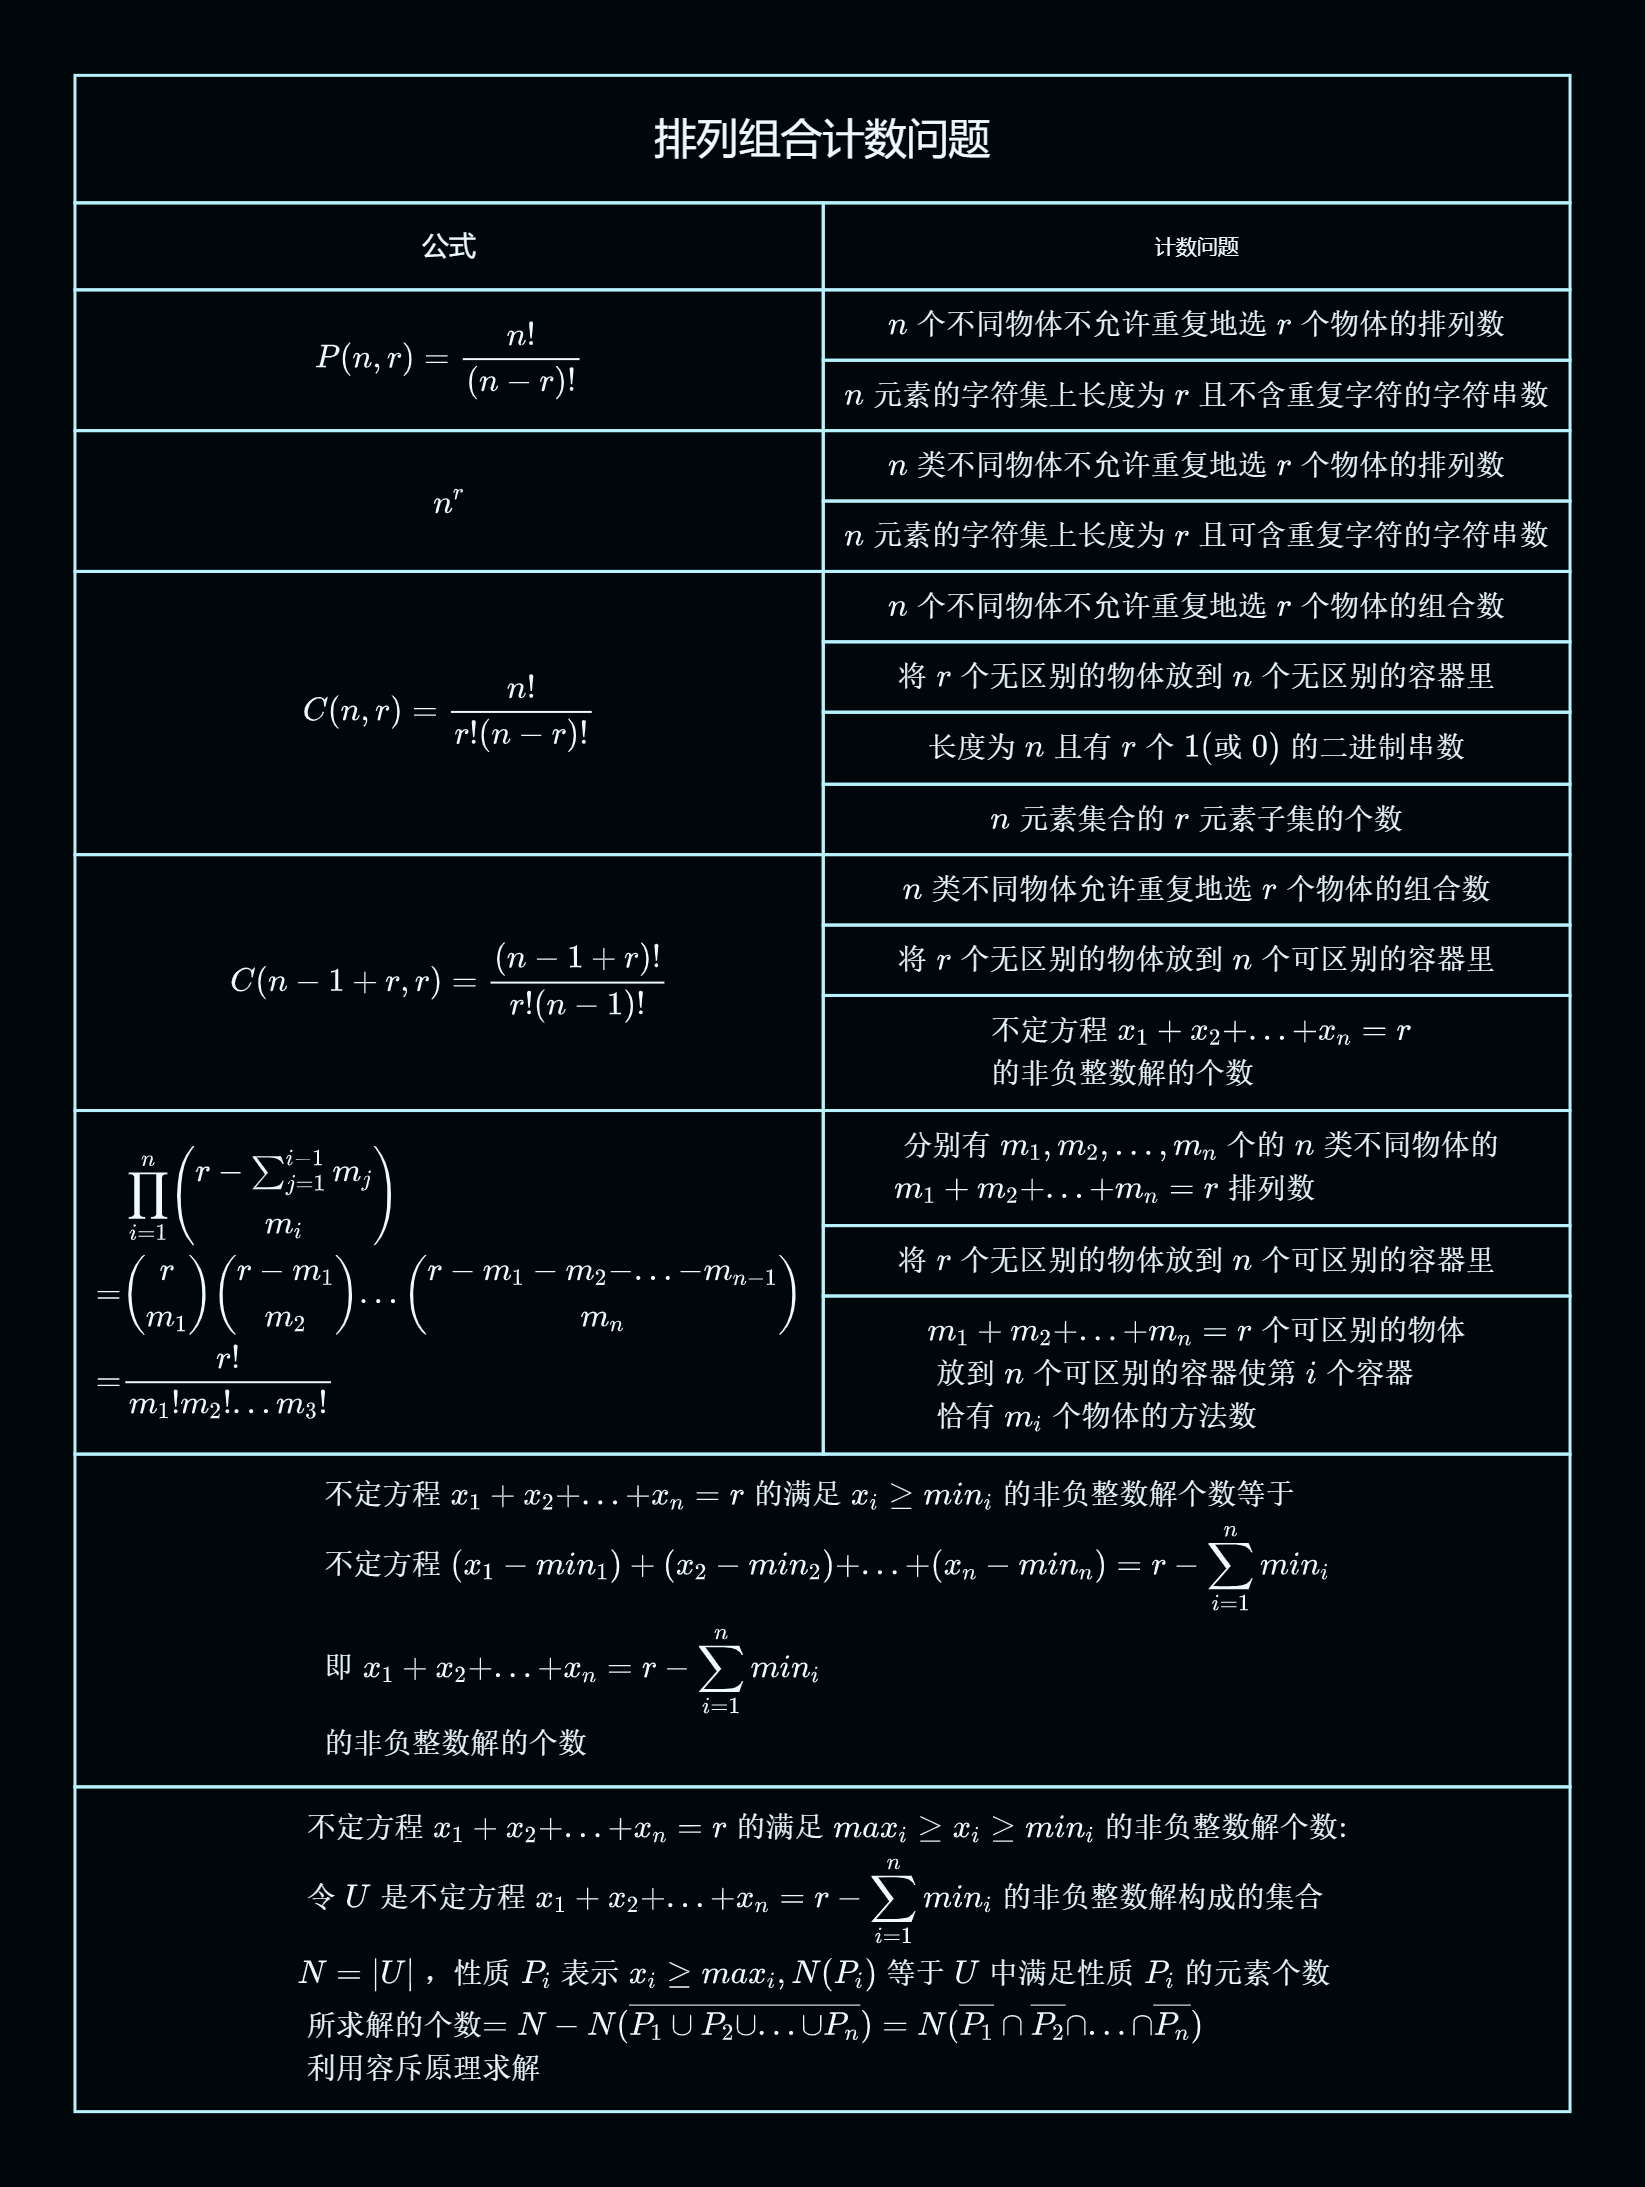 排列组合计数问题
公式
计数问题
P(n, r) = n! / (n − r)!
n 个不同物体不允许重复地选 r 个物体的排列数
n 元素的字符集上长度为 r 且不含重复字符的字符串数
n^r
n 类不同物体不允许重复地选 r 个物体的排列数
n 元素的字符集上长度为 r 且可含重复字符的字符串数
C(n, r) = n! / r!(n − r)!
n 个不同物体不允许重复地选 r 个物体的组合数
将 r 个无区别的物体放到 n 个无区别的容器里
长度为 n 且有 r 个 1(或 0) 的二进制串数
n 元素集合的 r 元素子集的个数
C(n − 1 + r, r) = (n − 1 + r)! / r!(n − 1)!
n 类不同物体允许重复地选 r 个物体的组合数
将 r 个无区别的物体放到 n 个可区别的容器里
不定方程 x_1 + x_2+...+x_n = r
的非负整数解的个数
∏_{i=1}^{n} (r − ∑_{j=1}^{i−1} m_j  m_i)
=(r  m_1)(r − m_1  m_2)...(r − m_1 − m_2−...−m_{n−1}  m_n)
= r! / m_1!m_2!...m_3!
分别有 m_1, m_2, ..., m_n 个的 n 类不同物体的
m_1 + m_2+...+m_n = r 排列数
将 r 个无区别的物体放到 n 个可区别的容器里
m_1 + m_2+...+m_n = r 个可区别的物体
放到 n 个可区别的容器使第 i 个容器
恰有 m_i 个物体的方法数
不定方程 x_1 + x_2+...+x_n = r 的满足 x_i ≥ min_i 的非负整数解个数等于
不定方程 (x_1 − min_1) + (x_2 − min_2)+...+(x_n − min_n) = r − ∑_{i=1}^{n} min_i
即 x_1 + x_2+...+x_n = r − ∑_{i=1}^{n} min_i
的非负整数解的个数
不定方程 x_1 + x_2+...+x_n = r 的满足 max_i ≥ x_i ≥ min_i 的非负整数解个数:
令 U 是不定方程 x_1 + x_2+...+x_n = r − ∑_{i=1}^{n} min_i 的非负整数解构成的集合
N = |U|，性质 P_i 表示 x_i ≥ max_i, N(P_i) 等于 U 中满足性质 P_i 的元素个数
所求解的个数= N − N(\overline{P_1 ∪ P_2∪...∪P_n}) = N(\overline{P_1} ∩ \overline{P_2}∩...∩\overline{P_n})
利用容斥原理求解